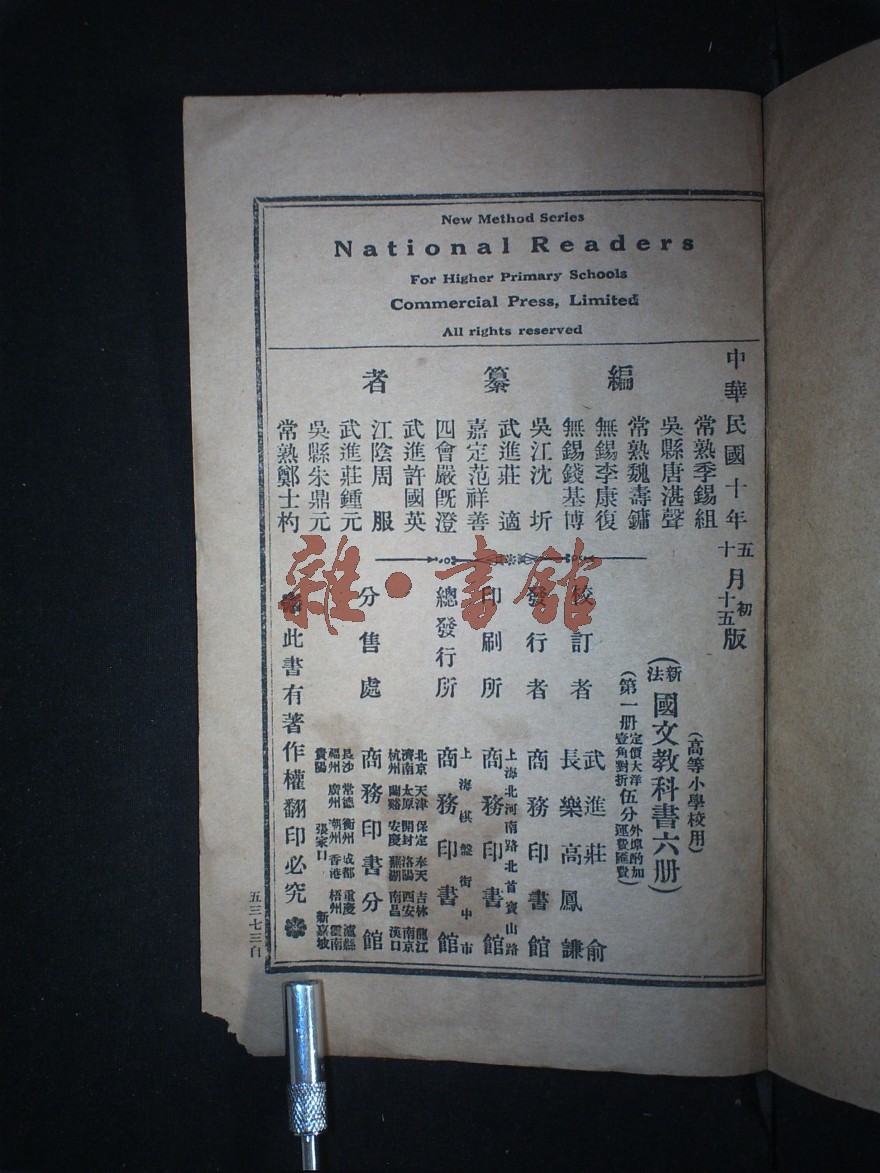 New Method Series
National Readers
For Higher Primary Schools
Commercial Press, Limited
All rights reserved
中華民國十年五月初版
十月十五版
編纂者
常熟季錫組
吳縣唐湛聲
常熟魏壽鏞
無錫李康復
無錫錢基博
吳江沈圻
武進莊適
嘉定范祥善
四會嚴旣澄
武進許國英
江陰周服
武進莊鍾元
吳縣朱鼎元
常熟鄭士杓
(高等小學校用)
(新法國文教科書六册)
(第一册定價大洋壹角對折伍分外埠酌加運費匯費)
校訂者
武進莊俞
長樂高鳳謙
發行者
商務印書館
印刷所
上海北河南路北首寶山路
商務印書館
總發行所
上海棋盤街中市
商務印書館
分售處
北京 天津 保定 奉天 吉林 龍江
濟南 太原 開封 洛陽 西安 南京
杭州 蘭谿 安慶 蕪湖 南昌 漢口
商務印書分館
長沙 常德 衡州 成都 重慶 瀘縣
福州 廣州 潮州 香港 梧州 雲南
貴陽 張家口 新嘉坡
此書有著作權翻印必究
五三七三自
雜·書館